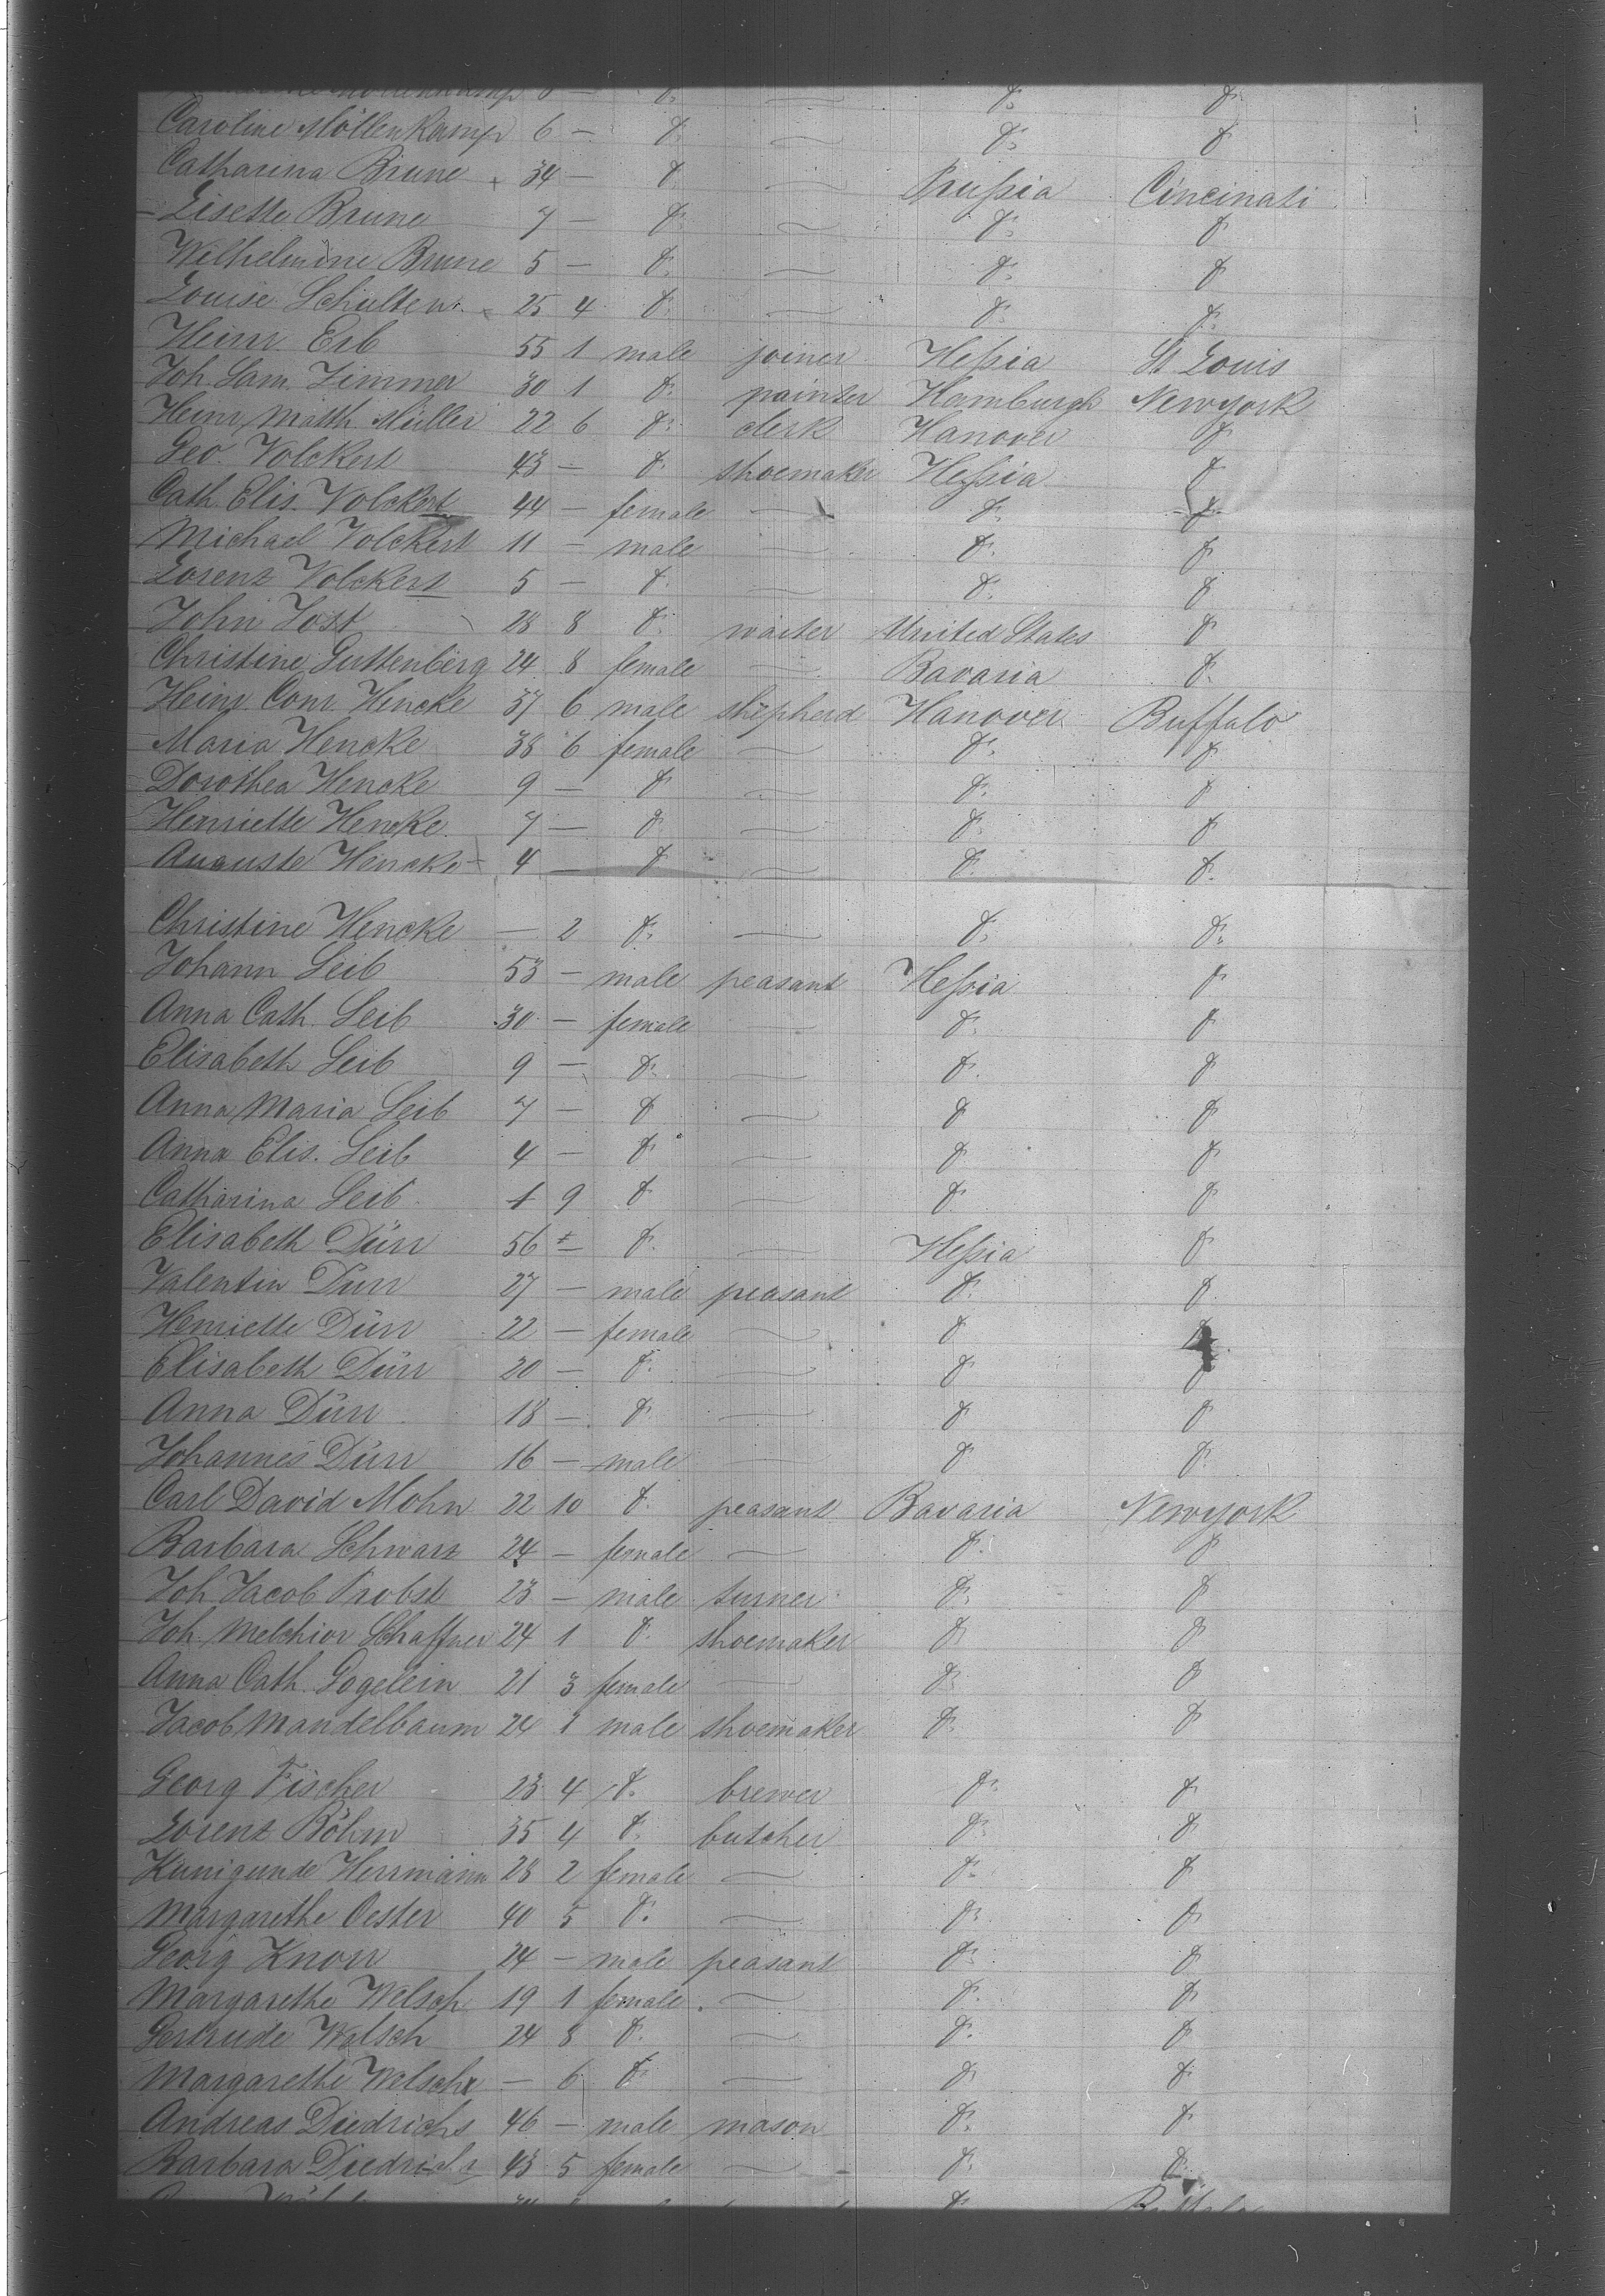 6 — do. — do. do.
Caroline Möllenkamp 6 — do. — do. do
Catharina Brune x 34 — do — Prussia Cincinati
Lisette Brune 7 — do. — do. do
Wilhelmine Brune 5 — do. — do. do
Louise Schulte w. x 25 4 do. — do. do.
Heinr. Erb 55 1 male joiner Hessia St Louis
Joh. Sam. Zimmer 30 1 do. painter Hamburgh Newyork
Heinr. Matth. Müller 22 6 do. clerk Hanover do
Geo. Volckert 43 — do. shoemaker Hessia do
Cath. Elis. Volckert 44 — female — do. do
Michael Volckert 11 — male — do. do
Lorenz Volckert 5 — do. — do. do
John Jost 28 8 do. waiter United States do
Christine Guttenberg 24 8 female — Bavaria do.
Heinr. Conr. Hencke 37 6 male shepherd Hanover Buffalo
Maria Hencke 38 6 female — do. do
Dorothea Hencke 9 — do — do. do
Henriette Hencke 7 — do — do. do
Auguste Hencke 4 — do — do. do.
Christine Hencke — 2 do. — do. do.
Johann Leib 53 — male peasant Hessia do
Anna Cath. Leib 30 — female — do. do
Elisabeth Leib 9 — do. — do. do
Anna Maria Leib 7 — do — do do
Anna Elis. Leib 4 — do — do do
Catharina Leib 1 9 do — do. do
Elisabeth Dürr 56 — do. — Hessia do
Valentin Dürr 27 — male peasant do. do
Henriette Dürr 22 — female — do do
Elisabeth Dürr 20 — do. — do do
Anna Dürr 18 — do — do do
Johannes Dürr 16 — male — do do
Carl David Mohn 22 10 do. peasant Bavaria Newyork
Barbara Schwarz 24 — female — do. do
Joh. Jacob Probst 23 — male turner do. do
Joh. Melchior Schaffner 24 1 do. shoemaker do do
Anna Cath. Gogelein 21 3 female — do do
Jacob Mandelbaum 24 1 male shoemaker do. do
Georg Fischer 23 4 do. brewer do. do
Lorenz Böhm 35 4 do. butcher do. do
Kunigunde Herrmann 28 2 female — do. do
Margarethe Oester 40 5 do. — do. do
Georg Knorr 24 — male peasant do. do
Margarethe Welsch 19 1 female — do. do
Gertrude Welsch 24 8 do. — do. do
Margarethe Welsch — 6 do. — do do
Andreas Diedrichs 46 — male mason do. do
Barbara Diedrichs 43 5 female — do. do.
do Buffalo